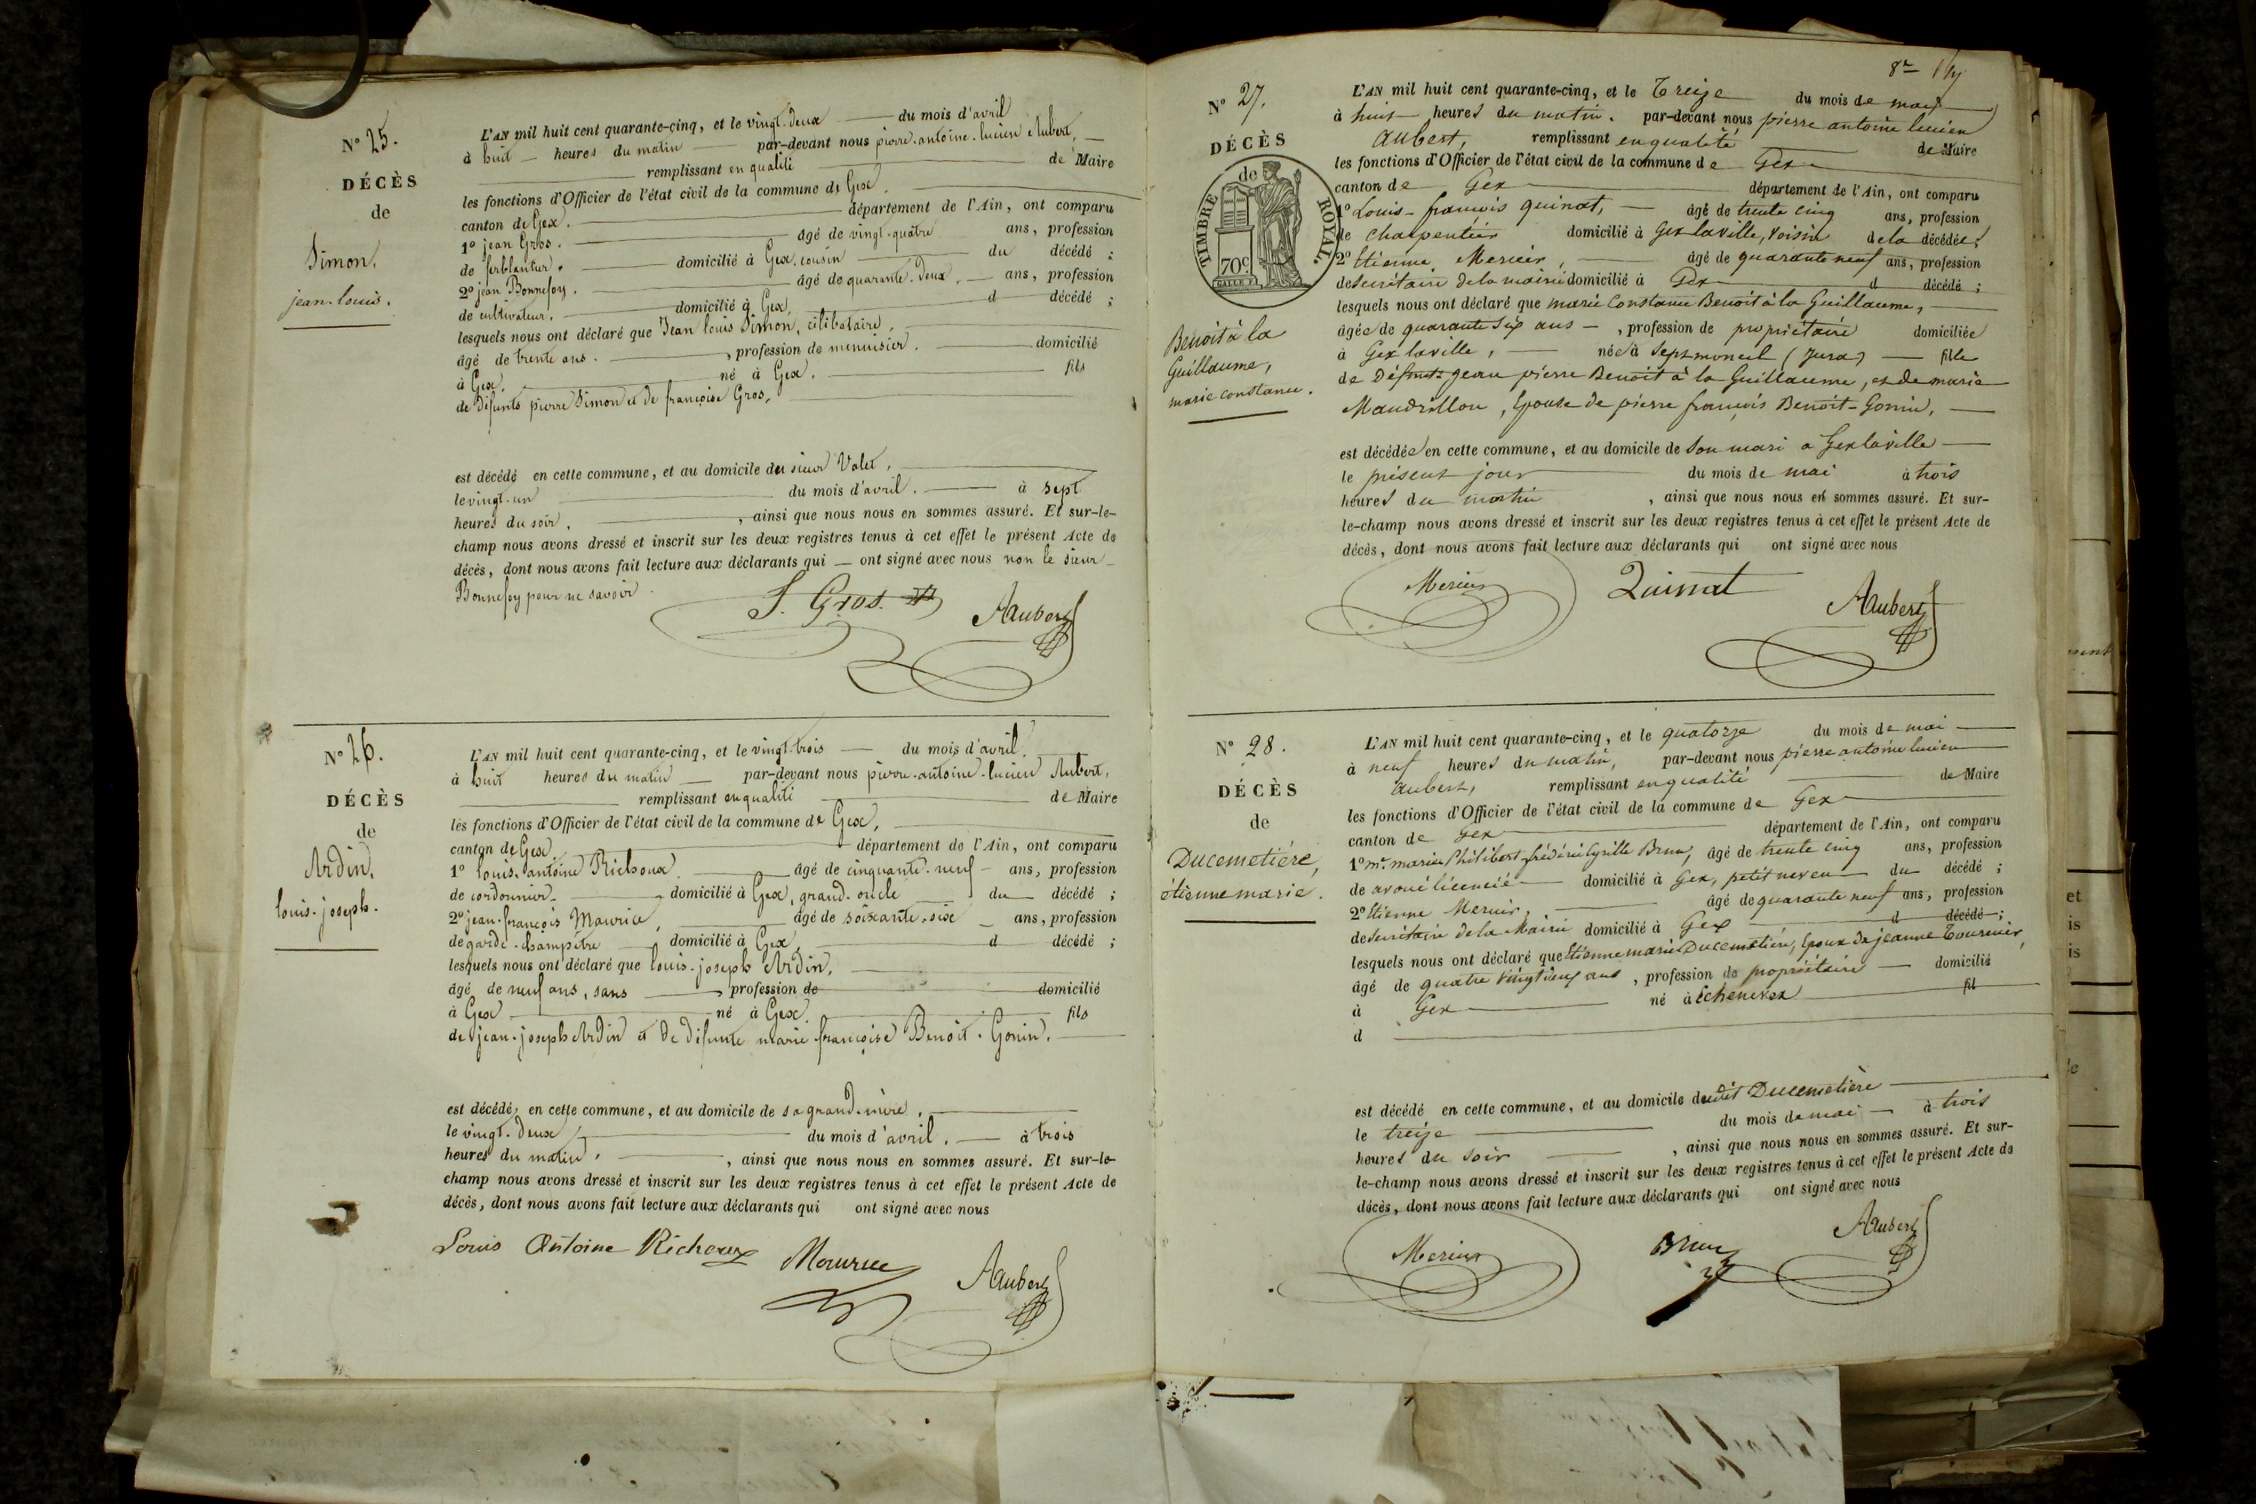 N° 25.
DÉCÈS
de
Simon,
jean-louis.
L'AN mil huit cent quarante-cinq, et le vingt-deux du mois d'avril
à huit heures du matin par-devant nous pierre-antoine-lucien Aubert,
remplissant en qualité de Maire
les fonctions d'Officier de l'état civil de la commune de Gex,
canton de Gex. département de l'Ain, ont comparu
1° jean Gros. âgé de vingt-quatre ans, profession
de ferblantier. domicilié à Gex, cousin du décédé ;
2° jean Bonnefoy. âgé de quarante-deux. ans, profession
de cultivateur. domicilié à Gex, d décédé ;
lesquels nous ont déclaré que Jean louis Simon, célibataire,
âgé de trente ans. , profession de menuisier. domicilié
à Gex. né à Gex. fils
de défunts pierre Simon et de françoise Gros,
est décédé en cette commune, et au domicile du sieur Valet,
le vingt-un du mois d'avril. à sept
heures du soir, , ainsi que nous nous en sommes assuré. Et sur-le-
champ nous avons dressé et inscrit sur les deux registres tenus à cet effet le présent Acte de
décès, dont nous avons fait lecture aux déclarants qui ont signé avec nous non le sieur
Bonnefoy pour ne savoir.
J. Gros. Aaubert
N° 26.
DÉCÈS
de
Ardin,
louis-joseph.
L'AN mil huit cent quarante-cinq, et le vingt-trois du mois d'avril.
à huit heures du matin par-devant nous pierre-antoine-lucien Aubert,
remplissant en qualité de Maire
les fonctions d'Officier de l'état civil de la commune de Gex,
canton de Gex. département de l'Ain, ont comparu
1° louis-antoine Richoux. âgé de cinquante-neuf ans, profession
de cordonnier. domicilié à Gex, grand-oncle du décédé ;
2° jean-françois Maurice, âgé de soixante-six ans, profession
de garde-champêtre domicilié à Gex, d décédé ;
lesquels nous ont déclaré que louis-joseph Ardin,
âgé de neuf ans, sans , profession de domicilié
à Gex né à Gex. fils
de jean-joseph Ardin et de défunte marie françoise Benoit-Gonin.
est décédé, en cette commune, et au domicile de sa grand-mère.
le vingt-deux du mois d'avril. à trois
heures du matin. , ainsi que nous nous en sommes assuré. Et sur-le-
champ nous avons dressé et inscrit sur les deux registres tenus à cet effet le présent Acte de
décès, dont nous avons fait lecture aux déclarants qui ont signé avec nous
Louis Antoine Richoux Maurice Aaubert
N° 27.
DÉCÈS
de
TIMBRE ROYAL.
70c
Benoit à la
Guillaume,
marie constance.
L'AN mil huit cent quarante-cinq, et le treize du mois de mai
à huit heures du matin. par-devant nous pierre antoine lucien
aubert, remplissant en qualité de Maire
les fonctions d'Officier de l'état civil de la commune de Gex
canton de Gex département de l'Ain, ont comparu
1° Louis-françois quinat, âgé de trente cinq ans, profession
de charpentier domicilié à Gex la ville, voisin de la décédée ;
2° Etienne Mercier, âgé de quarante neuf ans, profession
de secrétaire de la mairie domicilié à Gex d décédé ;
lesquels nous ont déclaré que marie Constance Benoit à la Guillaume,
âgée de quarante six ans , profession de propriétaire domiciliée
à Gex la ville, née à Septmoncel (Jura) fille
de Défunts jean pierre Benoit à la Guillaume, et de marie
Mandrillon, Epouse de pierre françois Benoit-Gonin,
est décédée en cette commune, et au domicile de son mari a Gex la ville
le présent jour du mois de mai à trois
heures du matin , ainsi que nous nous en sommes assuré. Et sur-
le-champ nous avons dressé et inscrit sur les deux registres tenus à cet effet le présent Acte de
décès, dont nous avons fait lecture aux déclarants qui ont signé avec nous
Mercier Quinat Aaubert
N° 28.
DÉCÈS
de
Ducemetière,
étienne marie.
L'AN mil huit cent quarante-cinq, et le quatorze du mois de mai
à neuf heures du matin, par-devant nous pierre antoine lucien
aubert, remplissant en qualité de Maire
les fonctions d'Officier de l'état civil de la commune de Gex
canton de Gex département de l'Ain, ont comparu
1° mr. marie Philibert frédéric Cyrille Brun, âgé de trente cinq ans, profession
de avoué licencié domicilié à Gex, petit neveu du décédé ;
2° Etienne Mercier, âgé de quarante neuf ans, profession
de secrétaire de la Mairie domicilié à Gex d décédé ;
lesquels nous ont déclaré que Etienne marie Ducemetière, Epoux de jeanne Tournier,
âgé de quatre vingt ans , profession de propriétaire domicilié
à Gex né à Echenevex fil
d
est décédé en cette commune, et au domicile dudit Ducemetière
le treize du mois de mai à trois
heures du soir , ainsi que nous nous en sommes assuré. Et sur-
le-champ nous avons dressé et inscrit sur les deux registres tenus à cet effet le présent Acte de
décès, dont nous avons fait lecture aux déclarants qui ont signé avec nous
Mercier Brun Aaubert